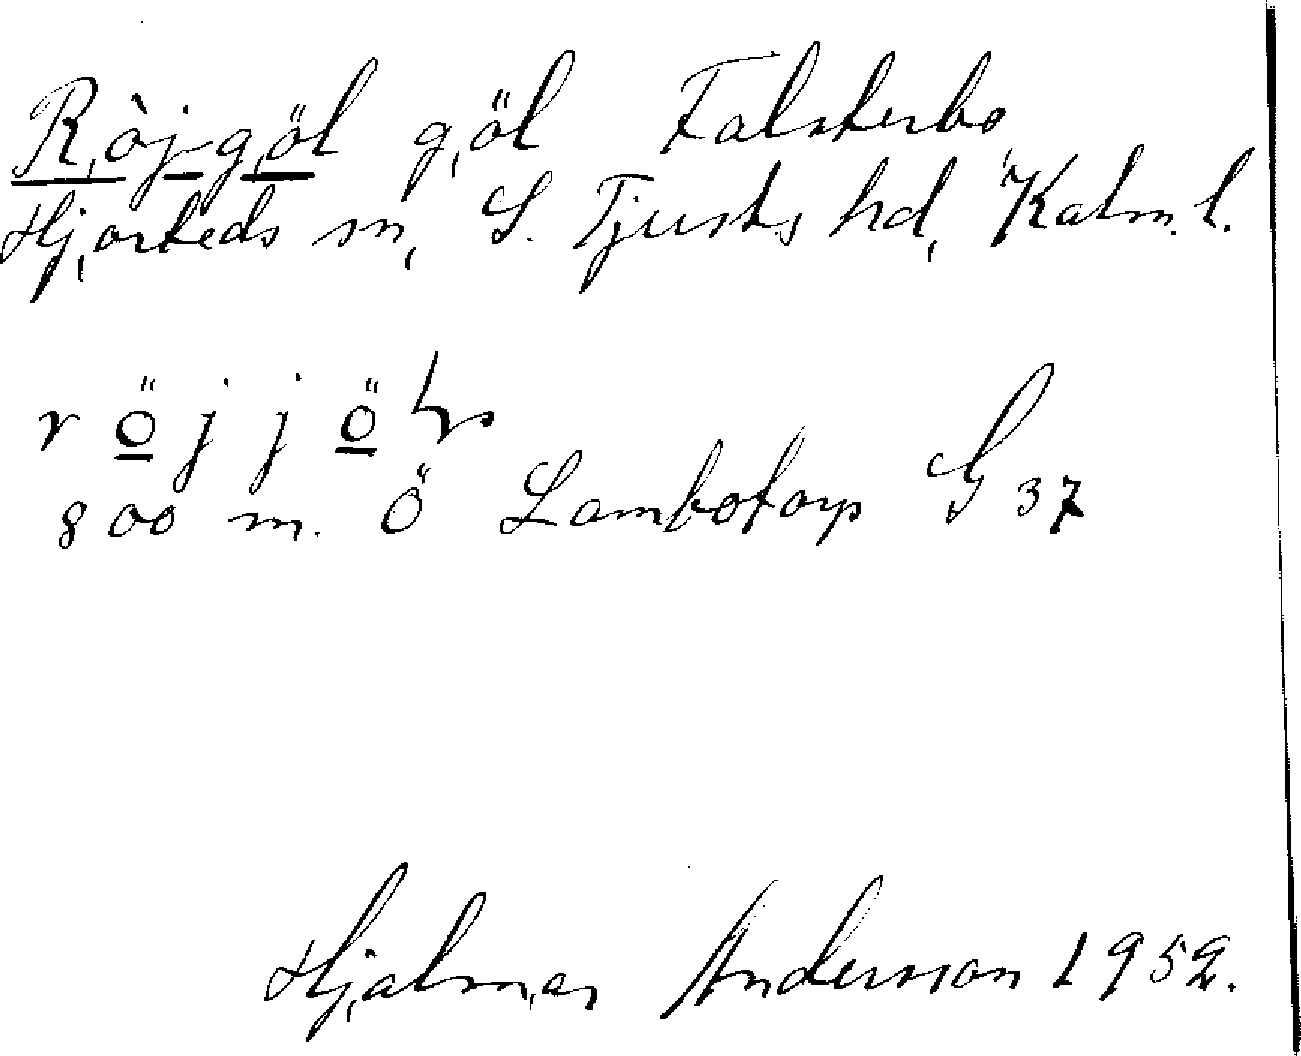 Röj-göl göl Falsterbo
Hjorteds sn, S. Tjusts hd, Kalm. l.
r ö j j ö
800 m. Ö Lambotorp G 37
Hjalmar Andersson 1952.